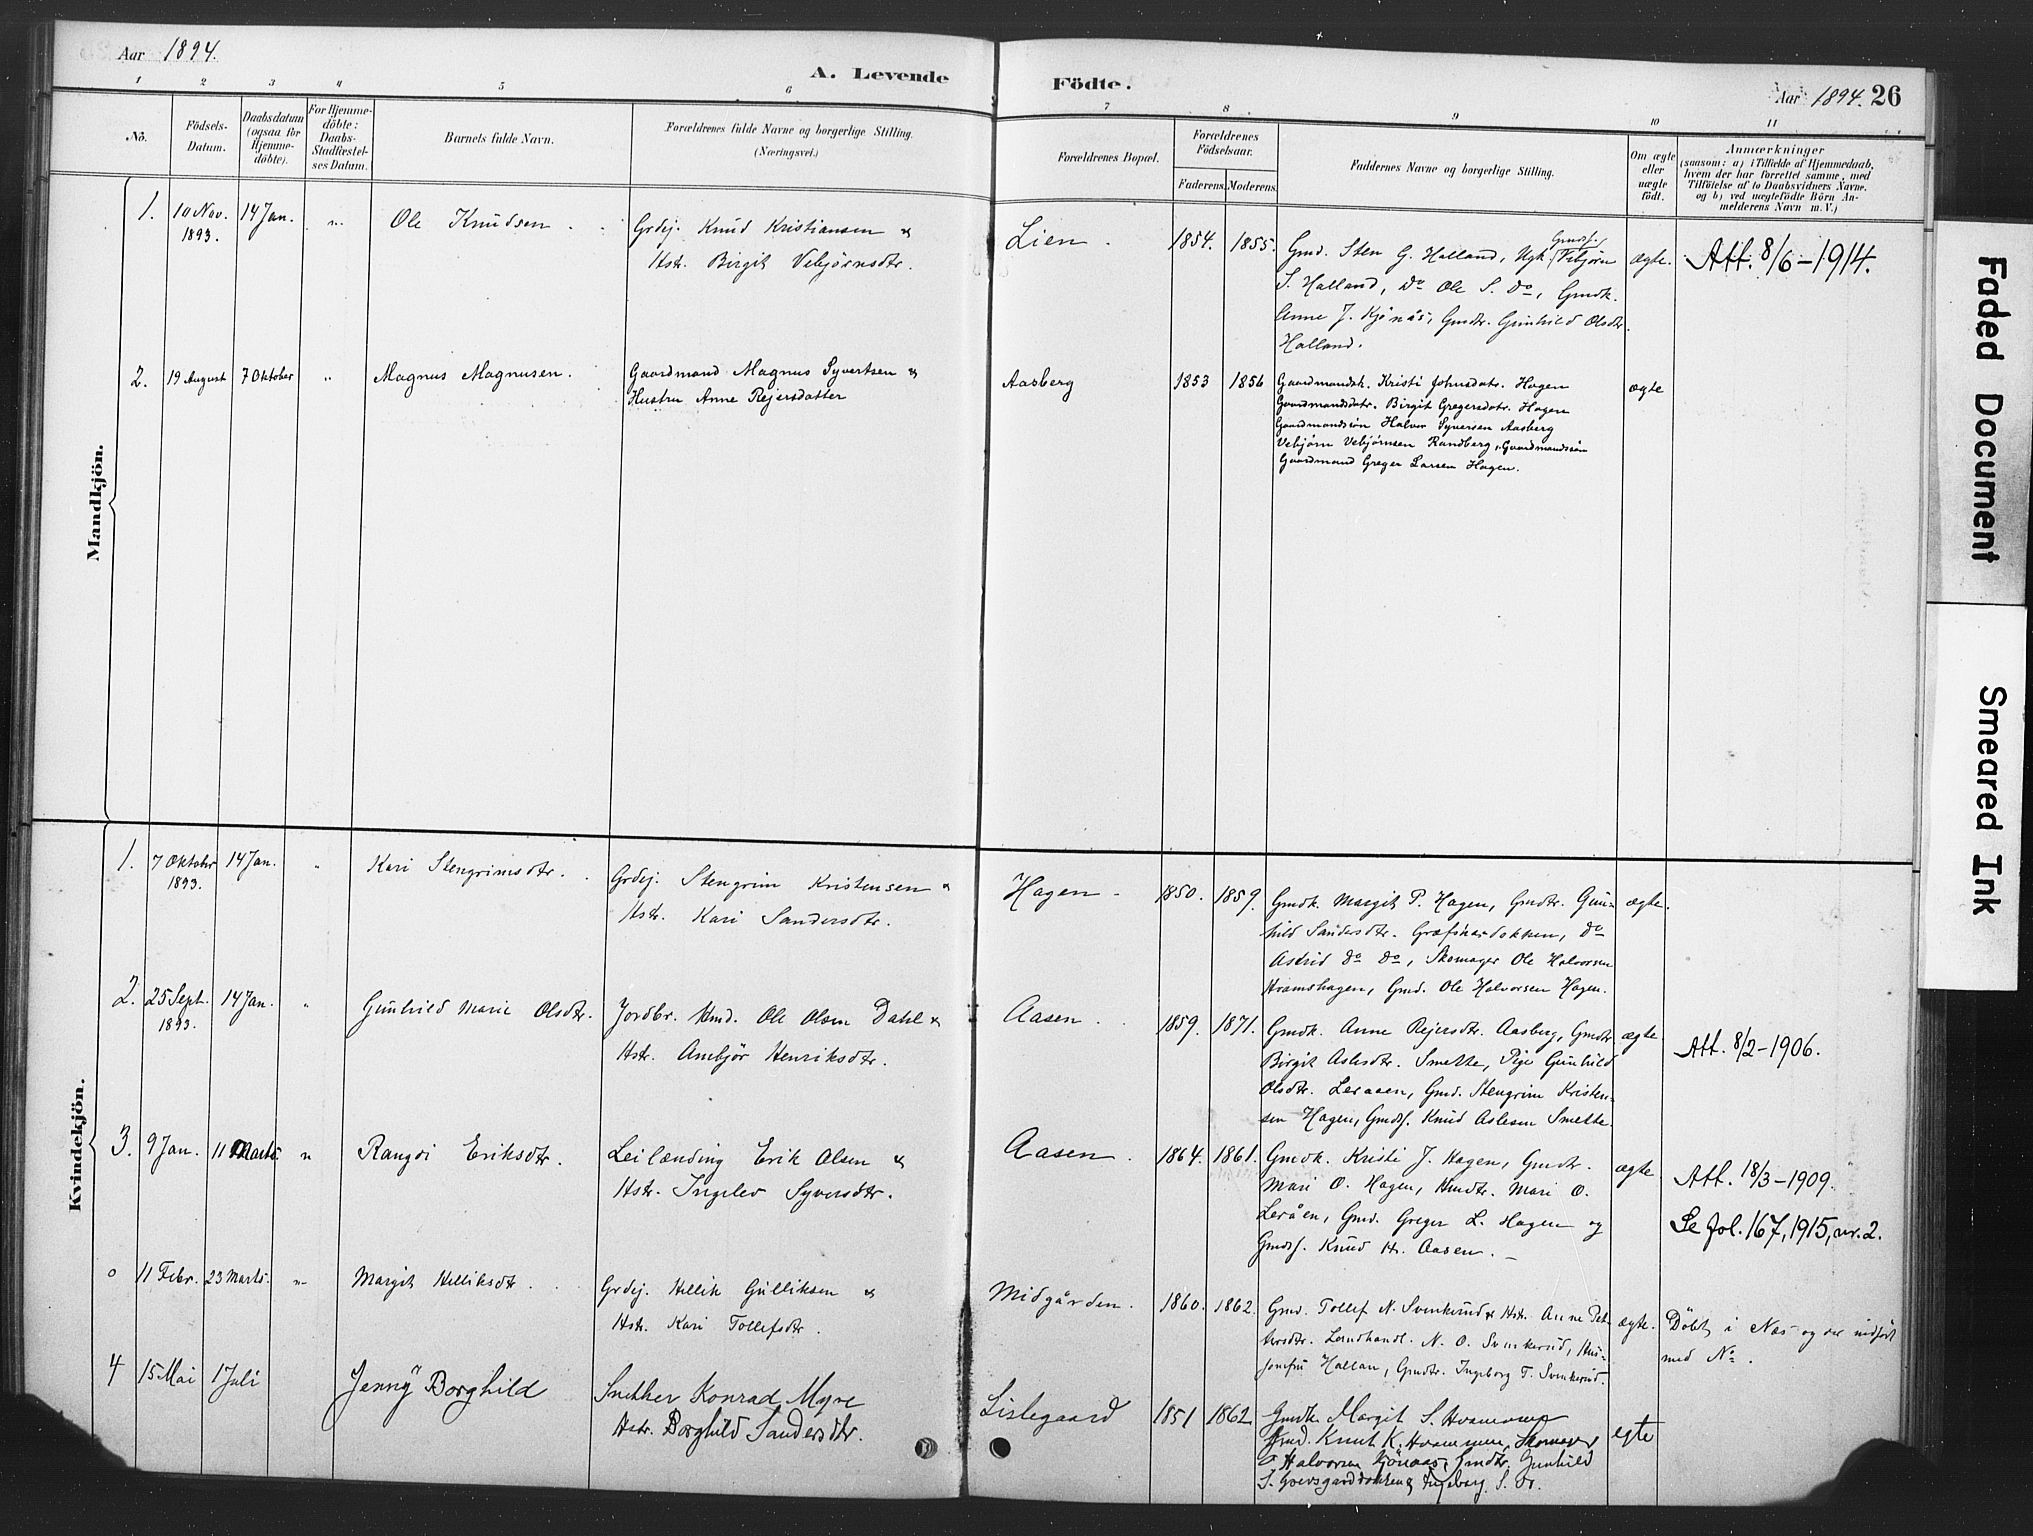 Aar 1894.
A. Levende
Födte.
Aar 1894. 26
1 2 3 4 5 6 7 8 9 10 11
No.
Födsels-
Datum.
Daabsdatum
(ogsaa for
Hjemme-
döbte).
For Hjemme-
döbte:
Daabs-
Stadfæstel-
ses Datum.
Barnets fulde Navn.
Forældrenes fulde Navne og borgerlige Stilling.
(Næringsvei.)
Forældrenes Bopæl.
Forældrenes
Födselsaar.
Faderens. Moderens.
Faddernes Navne og borgerlige Stilling.
Om ægte
eller
uægte
födt.
Anmærkninger
(saasom: a) i Tilfælde af Hjemmedaab,
hvem der har forrettet samme, med
Tilföielse af to Daabsvidners Navne.
og b) ved uægtefödte Börn An-
melderens Navn m. V.)
Mandkjön.
1. 10 Nov. 1893. 14 Jan. " Ole Knudsen.
Grdej. Knud Kristiansen &
Hstr. Birgit Vebjörnsdtr.
Lien. 1854. 1855.
Gmd. Sten G. Halland, Ugk. Gmdsf. Vebjörn
S. Halland, Do Ole S. Do, Gmdk.
Anne J. Kjönås, Gmdtr. Gunhild Olsdtr.
Halland.
ægte. Att. 8/6-1914.
2. 19 August 7 Oktober " Magnus Magnusen.
Gaardmand Magnus Syvertsen &
Hustru Anne Rejersdatter
Aasberg 1853 1856
Gaardmandsk. Kristi Johnsdatr. Hagen
Gaardmandsdatr. Birgit Gregersdatr. Hagen
Gaardmandssön Halvor Syversen Aasberg
Vebjörn Vebjörnsen Randberg, Gaardmandssön
Gaardmand Greger Larsen Hagen.
ægte
Kvindekjön.
1. 7 Oktober 1893. 14 Jan. " Kari Stengrimsdtr.
Grdej. Stengrim Kristensen &
Hstr. Kari Sandersdtr.
Hagen. 1850. 1859.
Gmdk. Margit P. Hagen, Gmdtr. Gun-
hild Sandersdtr. Græfsnasdokken, Do
Astrid Do Do, Skomager Ole Halvorsen
Hramshagen, Gmd. Ole Halvorsen Hagen.
ægte.
2. 25 Sept. 1893. 14 Jan. " Gunhild Marie Olsdtr.
Jordbr. Hmd. Ole Olsen Dahl &
Hstr. Ambjör Henriksdtr.
Aasen. 1859. 1871.
Gmdk. Anne Rejersdtr. Aasberg, Gmdtr.
Birgit Aslesdtr. Smette, Pige Gunhild
Olsdtr. Leraaen, Gmd. Stengrim Kristen-
sen Hagen, Gmdsf. Knud Aslesen Smette.
ægte. Att. 8/2-1906.
3. 9 Jan. 11 Marts " Rangdi Eriksdtr.
Leilænding Erik Olsen &
Hstr. Ingelev Syversdtr.
Aasen. 1864. 1861.
Gmdk. Kristi J. Hagen, Gmdtr.
Mari O. Hagen, Hmdtr. Mari O.
Leråen, Gmd. Greger L. Hagen og
Gmdsf. Knud H. Aasen.
ægte Att. 18/3-1909.
Se fol. 167, 1915, nr. 2.
0 11 Febr. 23 Marts. " Margit Helliksdtr.
Grdej. Hellik Gulliksen &
Hstr. Kari Tollefsdtr.
Midgården. 1860. 1862.
Gmd. Tollef N. Svenkerud & Hstr. Anne Pet-
tersdtr. Landhandl. N. O. Svenkerud, Hus-
jomfru Hallan, Gmdtr. Ingeborg T. Svenkerud.
ægte. Döbt i Næs og der indført
med No.
4 15 Mai 1 Juli Jenny Borghild
Snekker Konrad Myre
Hstr. Borghild Sandersdtr.
Lislegaard 1851 1862
Gmdk. Margit S.
Gmd. Knut K. Skomager
O Halvorsen Kjönaas, Gmdtr. Gunhild
Ingeborg S. Do.
egte
Faded Document
Smeared Ink